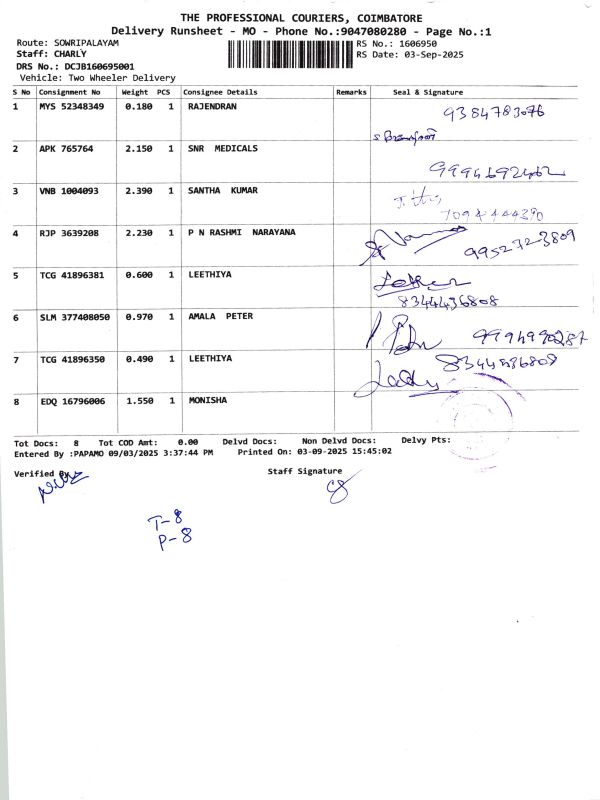 THE PROFESSIONAL COURIERS, COIMBATORE
Delivery Runsheet - MO - Phone No.:9047080280 - Page No.:1
Route: SOWRIPALAYAM RS No.: 1606950
Staff: CHARLY RS Date: 03-Sep-2025
DRS No.: DCJB160695001
Vehicle: Two Wheeler Delivery
S No Consignment No Weight PCS Consignee Details Remarks Seal & Signature
1 MYS 52348349 0.180 1 RAJENDRAN 9384783076
2 APK 765764 2.150 1 SNR MEDICALS 9994692462
3 VNB 1004093 2.390 1 SANTHA KUMAR
7094444390
4 RJP 3639208 2.230 1 P N RASHMI NARAYANA 9952723809
5 TCG 41896381 0.600 1 LEETHIYA
8344436808
6 SLM 377408050 0.970 1 AMALA PETER 9994990287
7 TCG 41896350 0.490 1 LEETHIYA 8344536808
8 EDQ 16796006 1.550 1 MONISHA
Tot Docs: 8 Tot COD Amt: 0.00 Delvd Docs: Non Delvd Docs: Delvy Pts:
Entered By :PAPAMO 09/03/2025 3:37:44 PM Printed On: 03-09-2025 15:45:02
Verified By Staff Signature
T-8
P-8